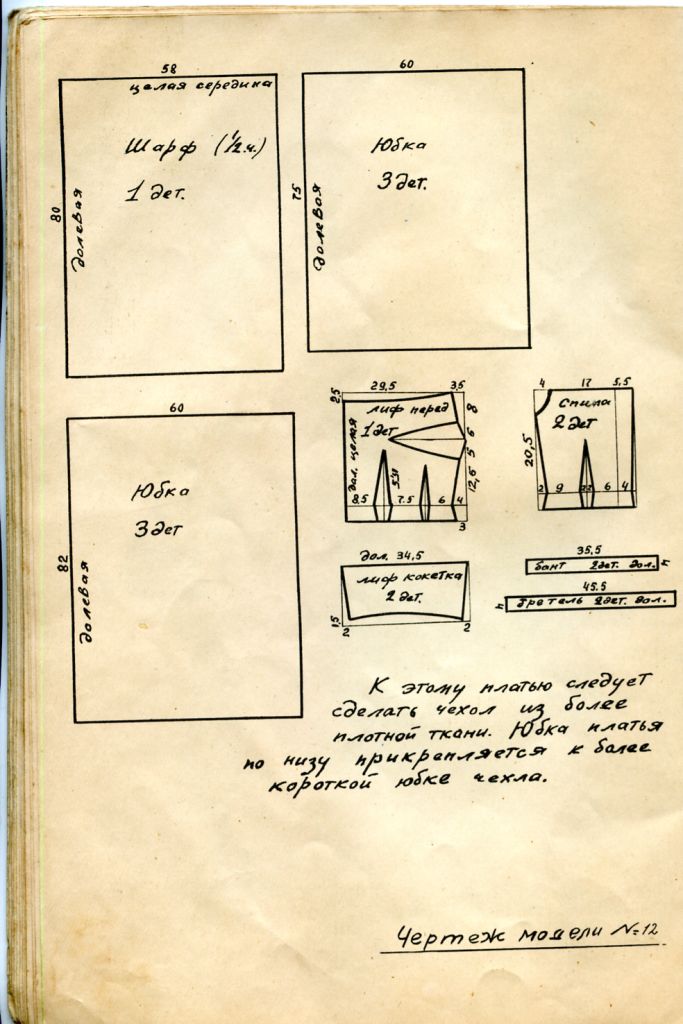 58
целая середина
Шарф (1/2 ч.)
1 дет.
80
долевая
60
Юбка
3 дет.
75
долевая
60
Юбка
3 дет
82
долевая
2,5 29,5 3,5
лиф перед
1 дет
дол. целая
8
6
5
12,5
8.5 7.5 6 4
3
4 17 5,5
Спина
2 дет
20,5
2 9 6 4
дол. 34,5
лиф кокетка
2 дет.
1,5 2 2
35.5
бант 2дет. дол. 4
45.5
4 Бретель 2дет. дол.
К этому платью следует
сделать чехол из более
плотной ткани. Юбка платья
по низу прикрепляется к более
короткой юбке чехла.
Чертеж модели №12